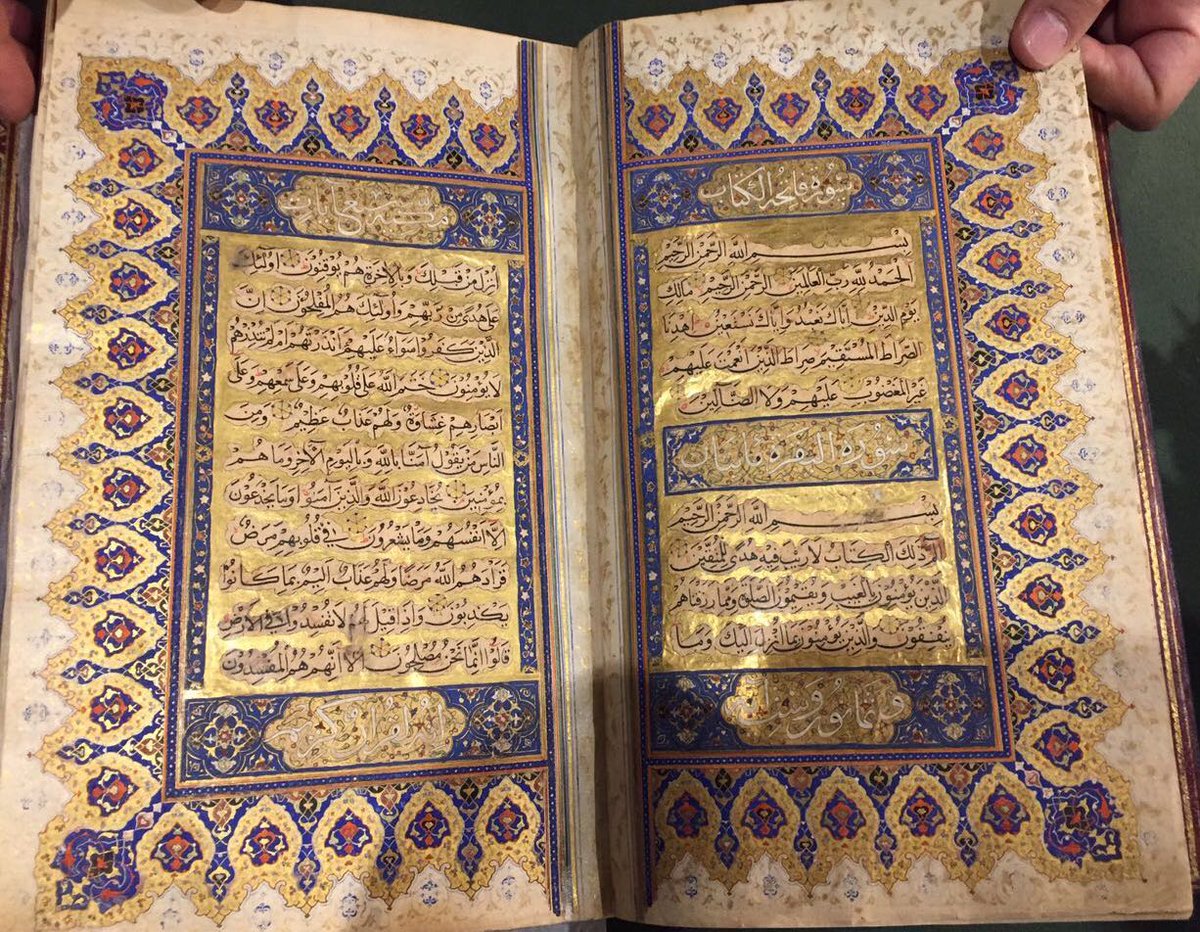 سورة فاتحة الكتاب
بسم الله الرحمن الرحيم
الحمد لله رب العالمين الرحمن الرحيم مالك
يوم الدين اياك نعبد واياك نستعين اهدنا
الصراط المستقيم صراط الذين انعمت عليهم
غير المغضوب عليهم ولا الضالين
سورة البقرة مايتان
بسم الله الرحمن الرحيم
الم ذلك الكتاب لا ريب فيه هدى للمتقين
الذين يؤمنون بالغيب ويقيمون الصلوة ومما رزقناهم
ينفقون والذين يؤمنون بما انزل اليك وما
وثمانون وست
سبع آيات
انزل من قبلك وبالاخرة هم يوقنون اولئك
على هدى من ربهم واولئك هم المفلحون ان
الذين كفروا سواء عليهم ءانذرتهم ام لم تنذرهم
لا يؤمنون ختم الله على قلوبهم وعلى سمعهم وعلى
ابصارهم غشاوة ولهم عذاب عظيم ومن
الناس من يقول آمنا بالله وباليوم الآخر وما هم
بمؤمنين يخادعون الله والذين آمنوا وما يخدعون
الا انفسهم وما يشعرون في قلوبهم مرض
فزادهم الله مرضا ولهم عذاب اليم بما كانوا
يكذبون واذا قيل لهم لا تفسدوا في الارض
قالوا انما نحن مصلحون الا انهم هم المفسدون
انه لقرآن كريم